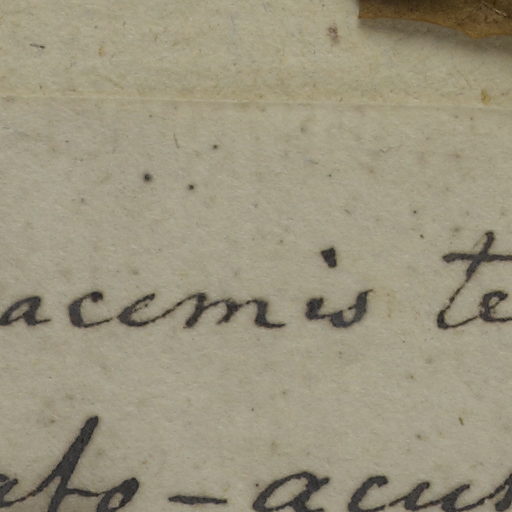 acemis te
ato-acus